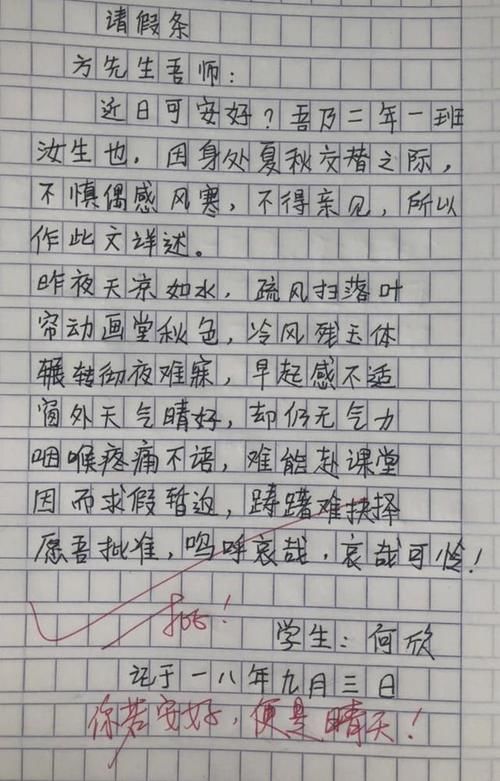 请假条
方先生吾师:
近日可安好?吾乃二年一班
汝生也,因身处夏秋交替之际,
不慎偶感风寒,不得亲见,所以
作此文详述。
昨夜天凉如水,疏风扫落叶
帘动画堂秋色,冷风残玉体
辗转彻夜难寐,早起感不适
窗外天气晴好,却仍无气力
咽喉疼痛不语,难能赴课堂
因而求假暂迫,踌躇难抉择
愿吾批准,呜呼哀哉,哀哉可怜!
批!
学生:何欣
记于一八年九月三日
你若安好,便是晴天!